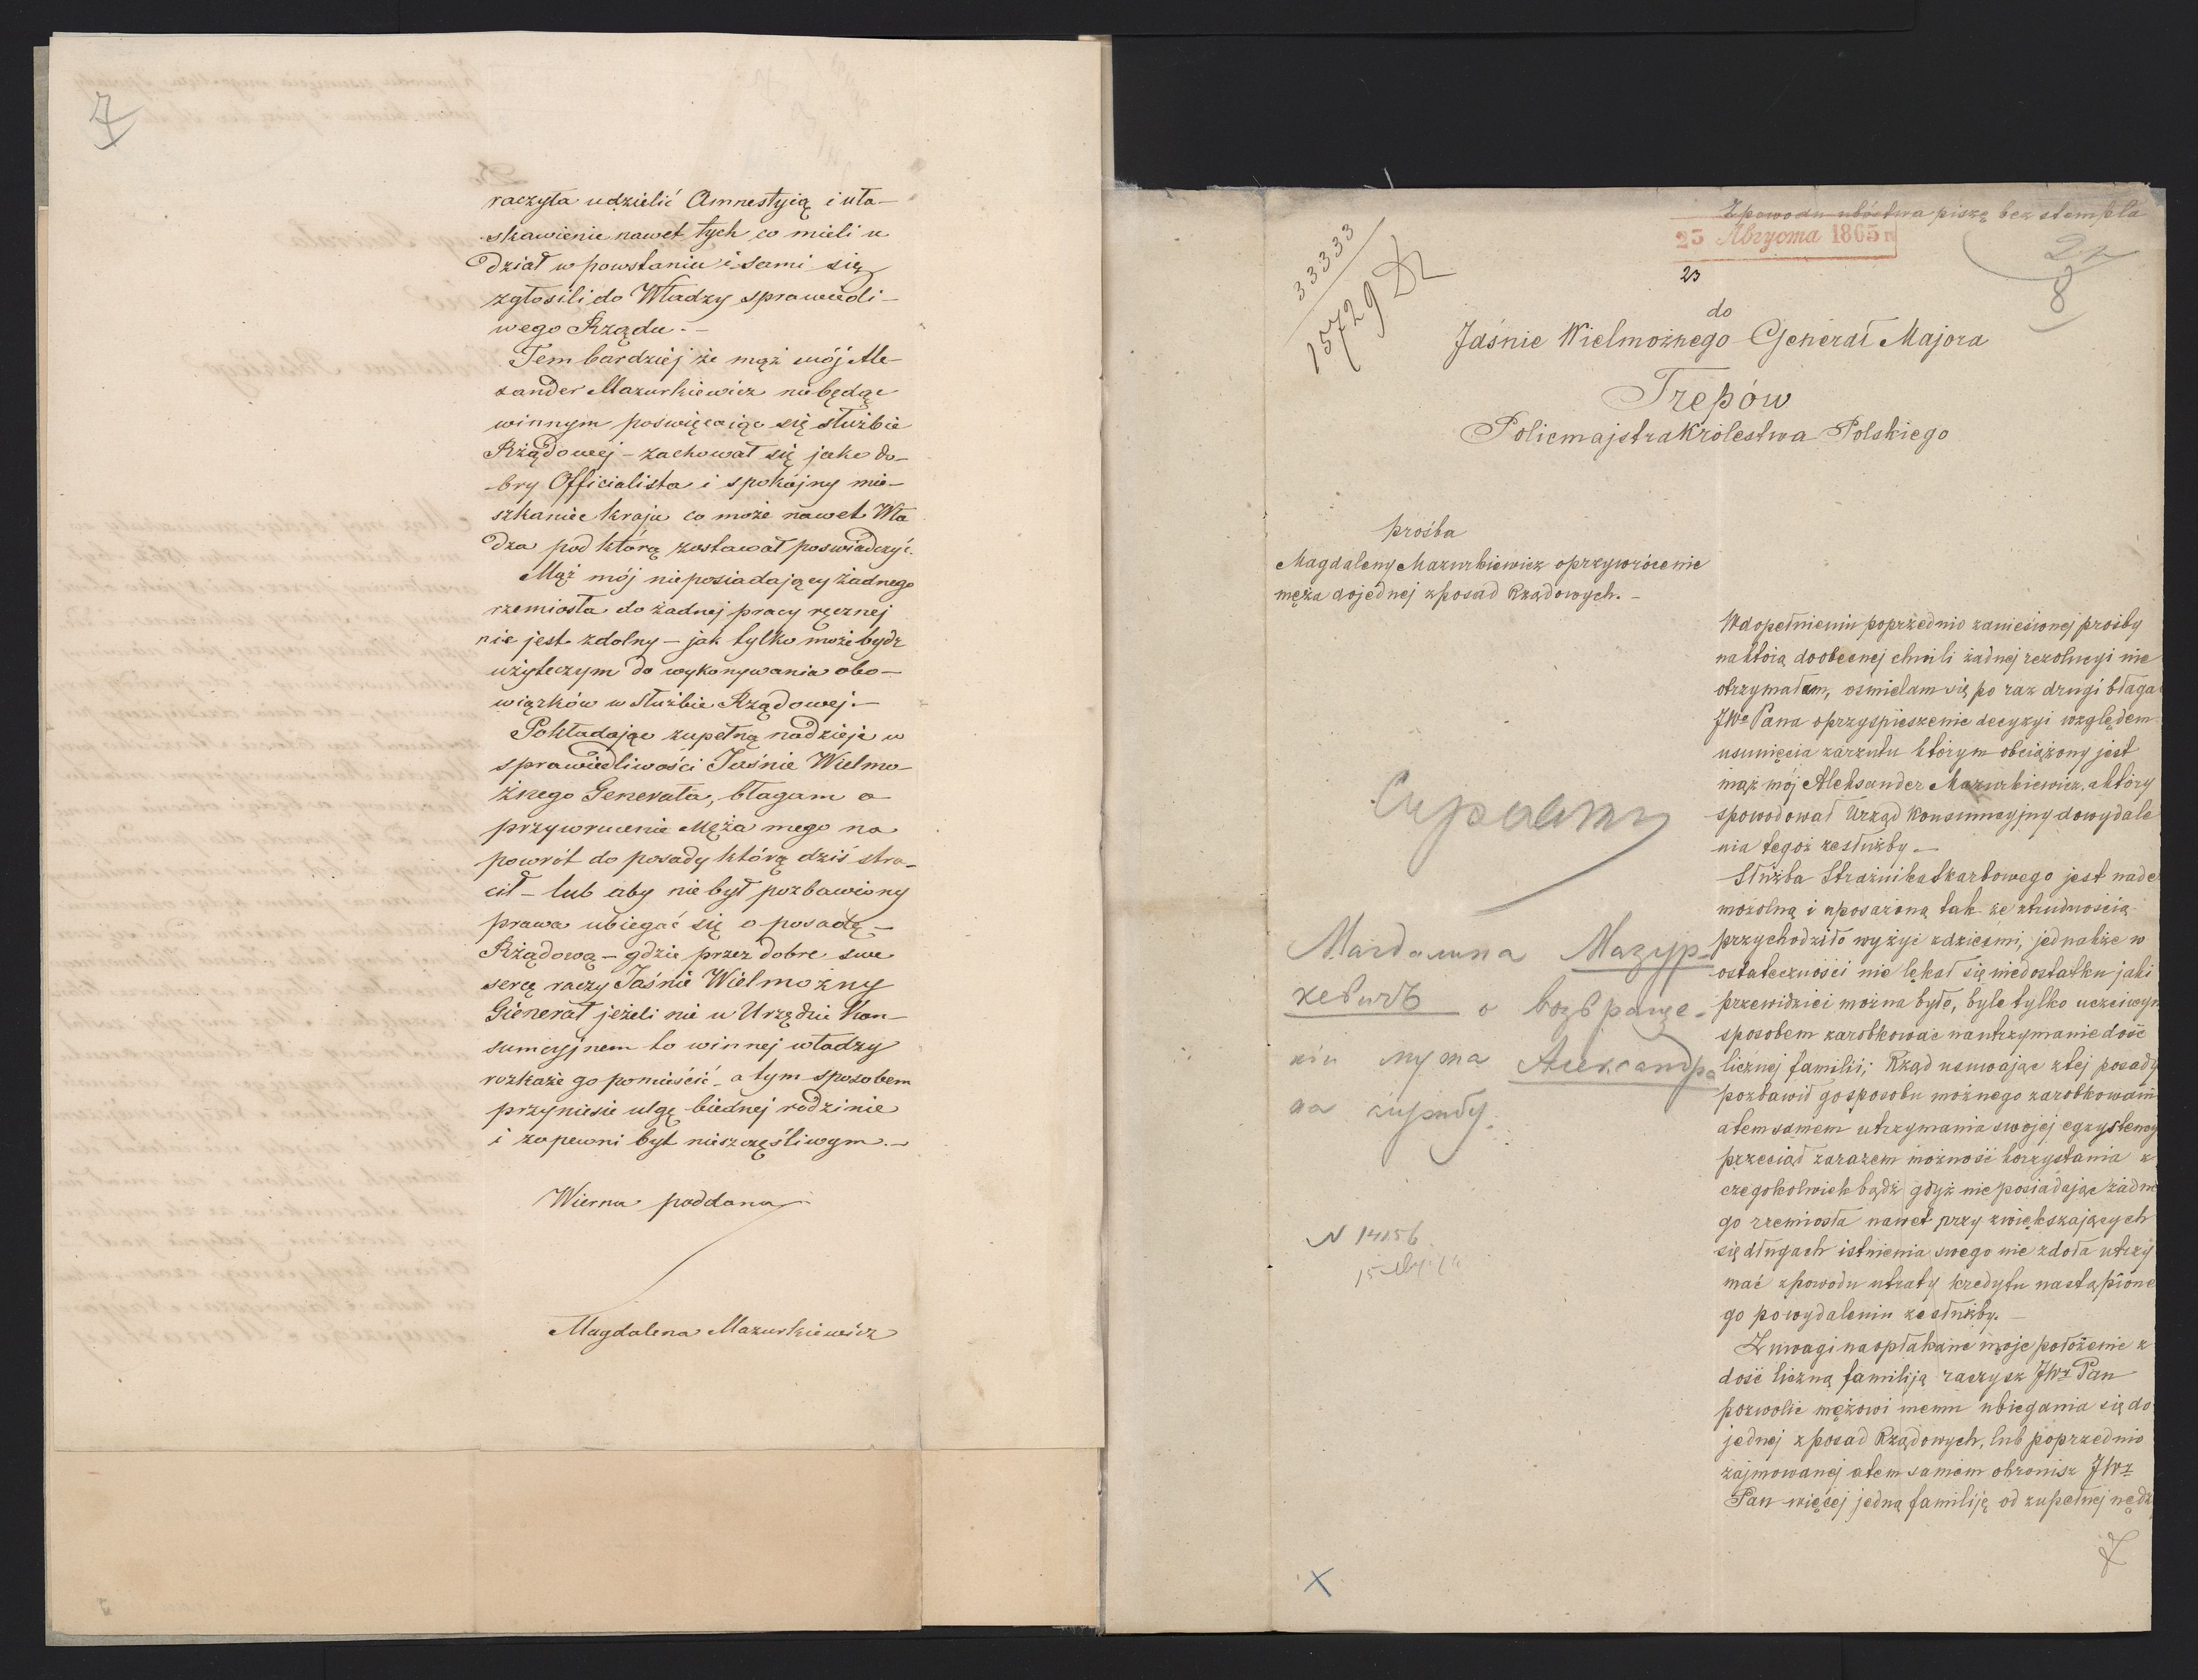 7
raczyła udzielić Amnestyią i uła-
skawienie nawet tych co mieli u
dział w powstaniu i sami się
zgłosili do Władzy sprawiedli-
wego Rządu. -
Tem bardziej że mąż mój Ale-
xander Mazurkiewicz niebędąc
winnym poswięcaiąc się służbie
Rządowej - zachował się jako do-
-bry Officialista i spokojny mie-
szkaniec kraju co może nawet Wła
dza pod którą zostawał poswiadczyć.
Mąż mój nieposiadający żadnego
rzemiosła do żadnej pracy ręcznej
nie jest zdolny - jak tylko może bydź
użyteczym do wykonywania obo-
wiązków w Służbie Rządowej. -
Pokładając zupełną nadzieje w
sprawiedliwości Jaśnie Wielmo-
żnego Generała, błagam o
przywrucenie Męża mego na
powrót do posady którą dziś stra-
cił - lub aby nie był pozbawiony
prawa ubiegać się o posadę -
Rządową - gdzie przez dobre swe
sercę raczy Jaśnie Wielmożny
Gienerał jeżeli nie w Urzędzie Kon-
sumcyjnem to winnej władzy
rozkaże go pomieścić - a tym sposobem
przyniesie ulgę biednej rodzinie
i zapewni byt nieszczęśliwym. -
Wierna poddana
Magdalena Mazurkiewicz
33333
15729
Z powodu ubóstwa piszę bez stempla
23 Августа 1865 г
23
8
do
Jaśnie Wielmożnego Generał Majora
Trepów
Policmajstra Królestwa Polskiego
prośba
Magdaleny Mazurkiewicz o przywrócenie
męża do jednej z posad Rządowych. -
Wdopełnieniu poprzednio zaniesionej prośby
na którą do obecnej chwili żadnej rezolucyi nie
otrzymałam, ośmielam się po raz drugi błaga
JWo Pana o przyspieszenie decyzyi względem
usunięcia zarzutu którym obciążony jest
mąż mój Aleksander Mazurkiewicz, a który
spowodował Urząd Konsumcyjny do wydale
nia tegoż ze służby. -
Służba Strażnika Skarbowego jest nader
mozolną i uposażoną tak że z trudnością
przychodziło wyżyć z dziećmi, jednakże w
ostateczności nie lękał się niedostatku jaki
przewidzieć można było, byle tylko uczciwym
sposobem zarobkować na utrzymanie dość
licznej familii; Rząd usuwając z tej posady
pozbawił go sposobu możnego zarobkowani
a tem samem utrzymania swojej egzystency
przeciął zarazem możność korzystania z
czegokolwiek bądź, gdyż nie posiadając żadne
go rzemiosła nawet przy zwiększających
się długach istnienia swego nie zdoła utrzy
mać z powodu utraty kredytu nastąpione
go po wydaleniu ze służby. -
Z uwagi na opłakane moje położenie z
dość liczną familiją raczysz JWy Pan
pozwolić mężowi memu ubiegania się do
jednej z posad Rządowych, lub poprzednio
zajmowanej a tem samem ohronisz JWy
Pan więcej jedną familiję od zupełnej nędz
Магдалина Мазур-
кевичъ о возвраще-
нии мужа Александра
на службу.
N 14156